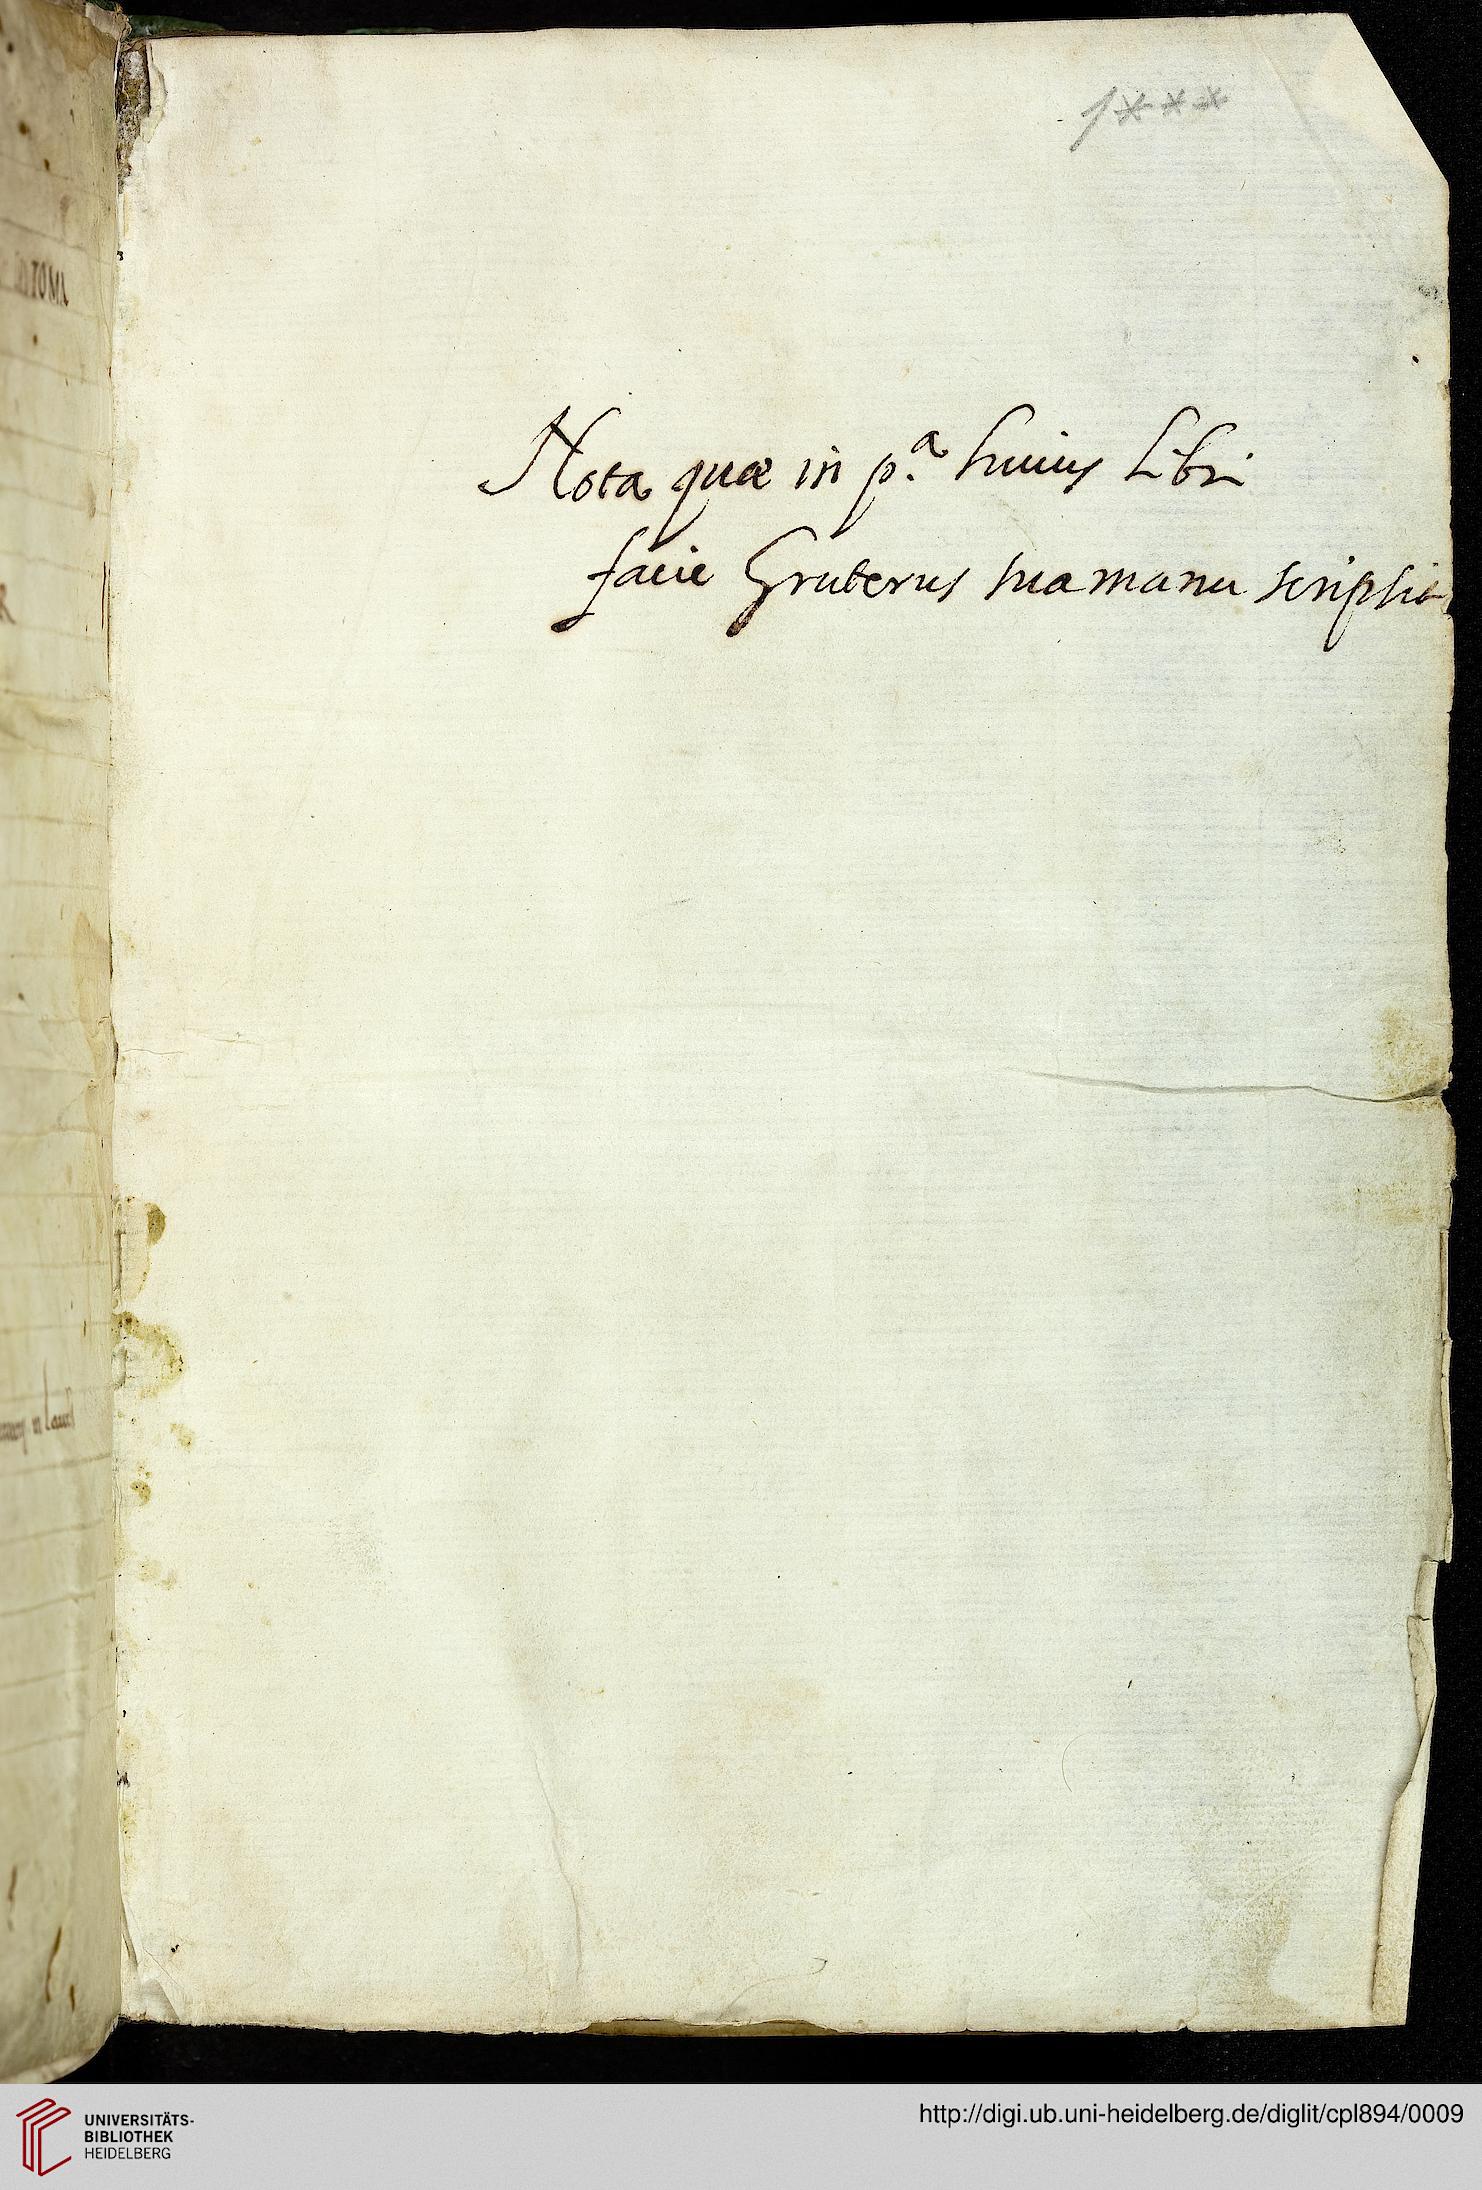 1***
TOMI
Nota quæ in p.ª huius Libri
facie Gruterus sua manu scripsit
UNIVERSITÄTS-
BIBLIOTHEK
HEIDELBERG
http://digi.ub.uni-heidelberg.de/diglit/cpl894/0009